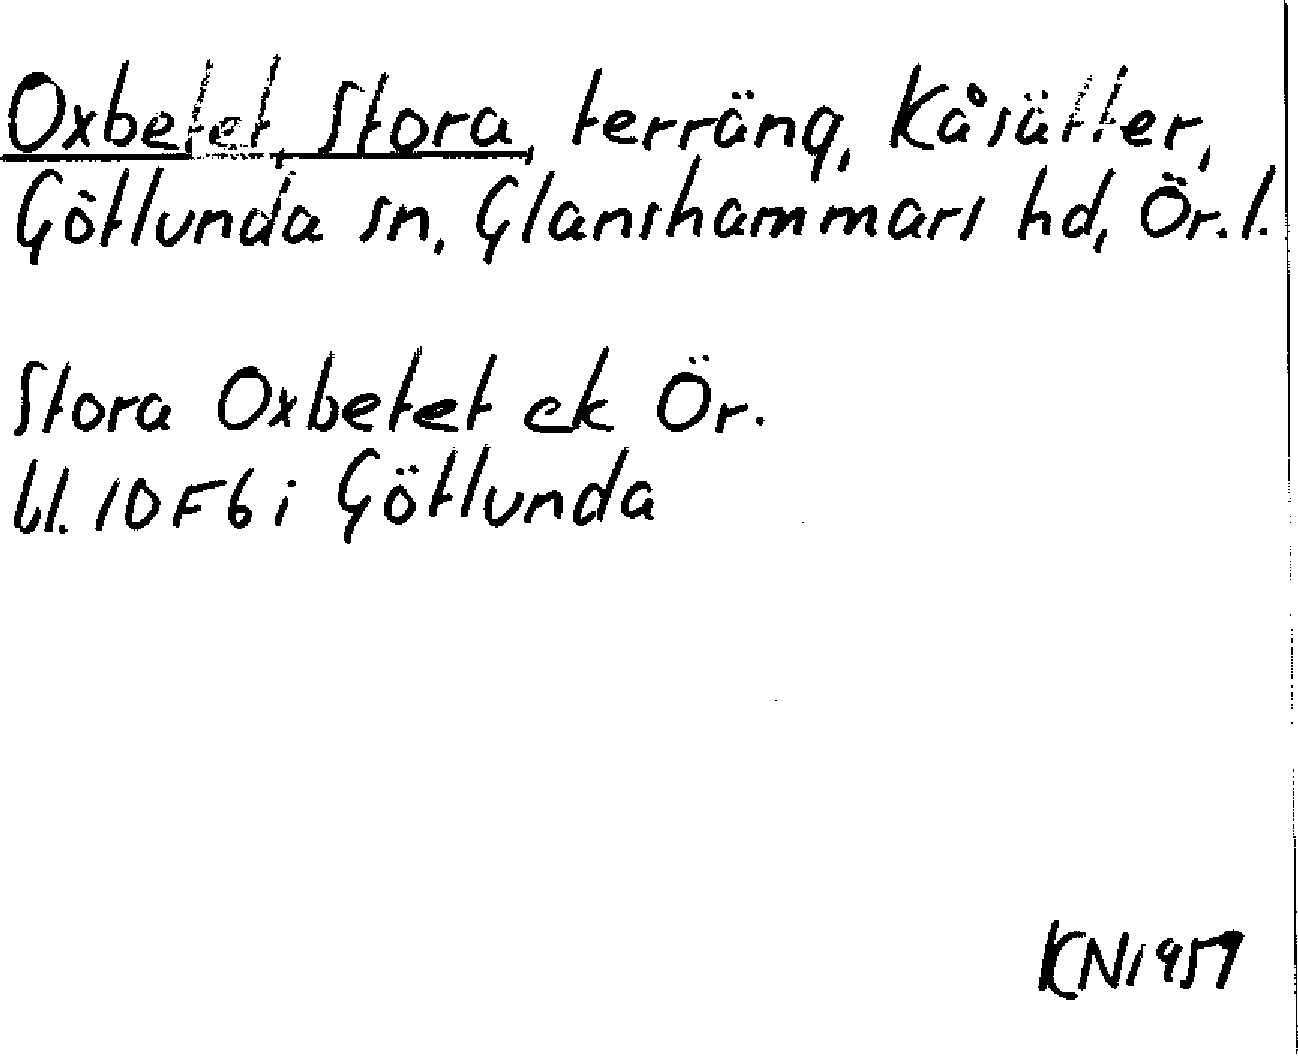 Oxbetet, Stora, terräng, Kåsätter,
Götlunda sn, Glanshammars hd, Ör. l.
Stora Oxbetet ek Ör.
bl. 10F6i Götlunda
KN1957